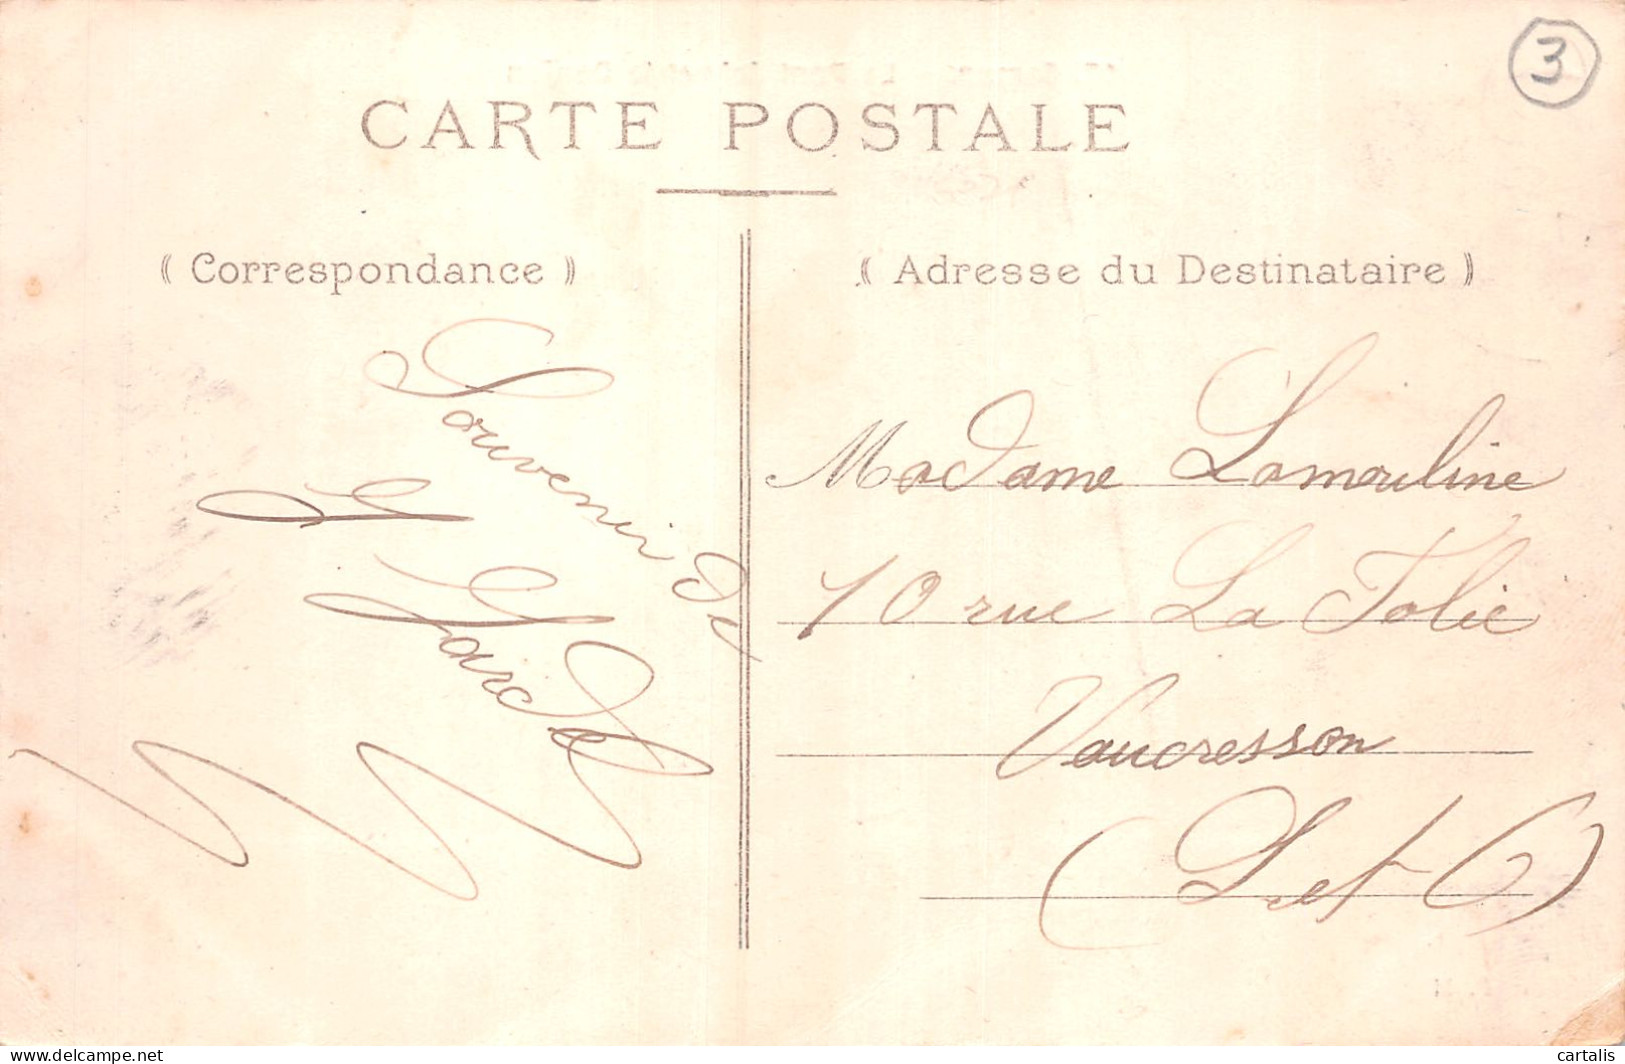 3
CARTE POSTALE
(( Correspondance ))
(( Adresse du Destinataire ))
Souvenir de
G Gardel
Madame Lamouline
10 rue La Folie
Vaucresson
(S et O)
delcampe.net
cartalis